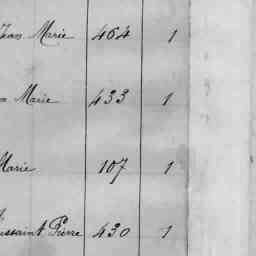 Marie 464 1
Marie 433 1
Marie 107 1
Toussaint Pierre 430 1